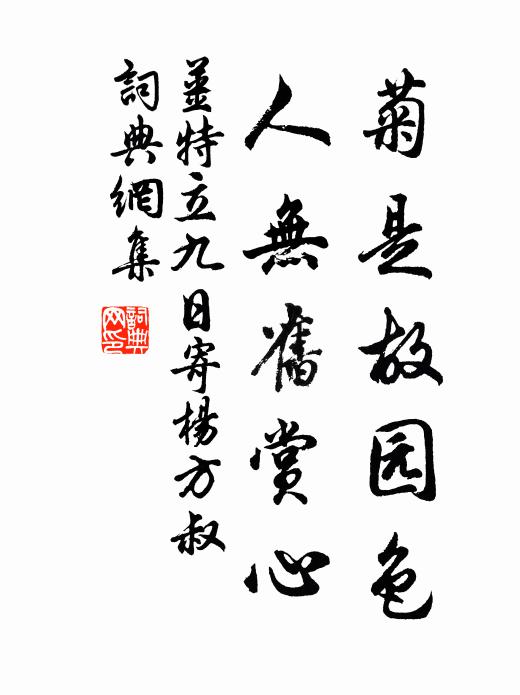 菊是故园色
人無舊賞心
薑特立九日寄楊方叔
詞典網集
詞典网印